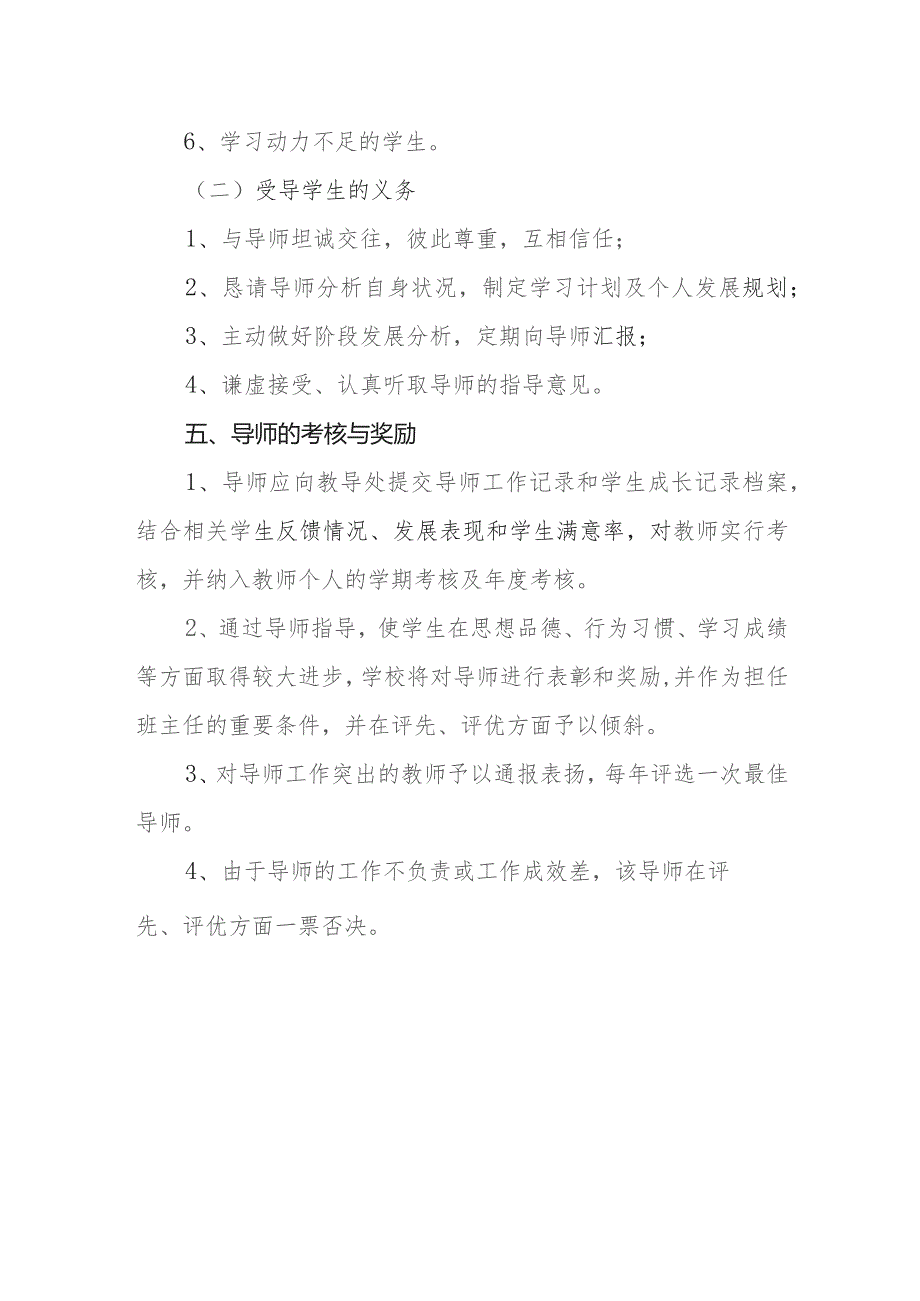 6、学习动力不足的学生。
（二）受导学生的义务
1、与导师坦诚交往，彼此尊重，互相信任；
2、恳请导师分析自身状况，制定学习计划及个人发展规划；
3、主动做好阶段发展分析，定期向导师汇报；
4、谦虚接受、认真听取导师的指导意见。
五、导师的考核与奖励
1、导师应向教导处提交导师工作记录和学生成长记录档案，
结合相关学生反馈情况、发展表现和学生满意率，对教师实行考
核，并纳入教师个人的学期考核及年度考核。
2、通过导师指导，使学生在思想品德、行为习惯、学习成绩
等方面取得较大进步，学校将对导师进行表彰和奖励,并作为担任
班主任的重要条件，并在评先、评优方面予以倾斜。
3、对导师工作突出的教师予以通报表扬，每年评选一次最佳
导师。
4、由于导师的工作不负责或工作成效差，该导师在评
先、评优方面一票否决。